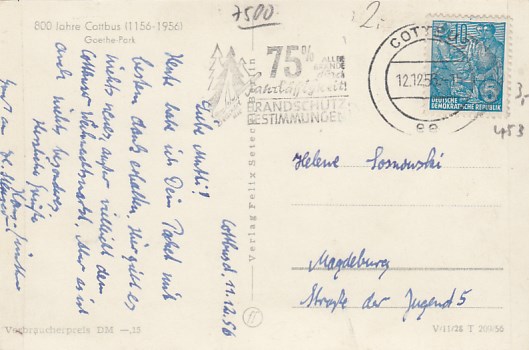 7500
2.-
800 Jahre Cottbus (1156-1956)
Goethe-Park
Cottbus d. 11.12.56
Liebe Mutti!
Heut hab ich Dein Paket mit
bestem Dank erhalten. Hier gibt es
nichts neues, außer vielleicht dem
Cottbuser Weihnachtsmarkt. Aber es ist
auch nichts besonderes.
Herzliche Grüße
Hans-Günther
Gruß an
Verlag Felix Setecki, Berlin
75%
ALLER
BRÄNDE
durch
Fahrlässigkeit!
BRANDSCHUTZ
BESTIMMUNGEN
COTTBUS
12.12.56
10
5
DEUTSCHE
DEMOKRATISCHE REPUBLIK
3.-
453
Helene Sosnowski
Magdeburg
Straße der Jugend 5
Verbraucherpreis DM —,15
V/11/28 T 209/56